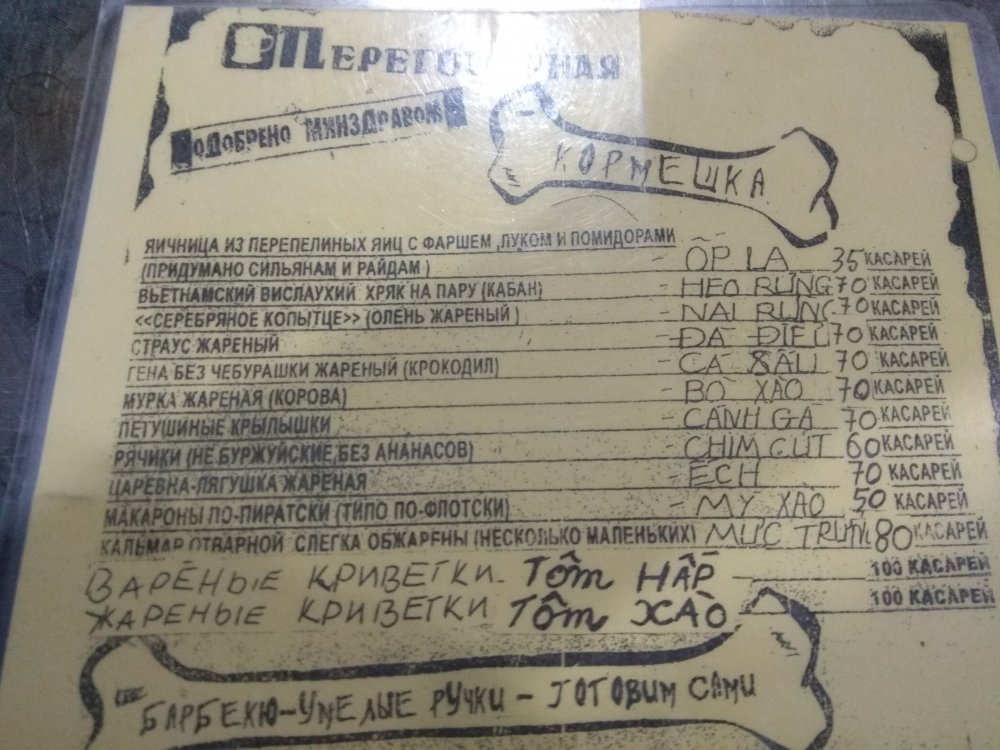 ПЕРЕГО
ОДОБРЕНО МИНЗДРАВОМ
КОРМЕШКА
ЯИЧНИЦА ИЗ ПЕРЕПЕЛИНЫХ ЯИЦ С ФАРШЕМ ,ЛУКОМ И ПОМИДОРАМИ
(ПРИДУМАНО СИЛЬЯНАМ И РАЙДАМ ) - ỐP LA 35 КАСАРЕЙ
ВЬЕТНАМСКИЙ ВИСЛАУХИЙ ХРЯК НА ПАРУ (КАБАН) - HEO RỪNG 70 КАСАРЕЙ
<<СЕРЕБРЯНОЕ КОПЫТЦЕ>> (ОЛЕНЬ ЖАРЕНЫЙ ) - NAI RỪNG 70 КАСАРЕЙ
СТРАУС ЖАРЕНЫЙ - ĐÀ ĐIỂU 70 КАСАРЕЙ
ГЕНА БЕЗ ЧЕБУРАШКИ ЖАРЕНЫЙ (КРОКОДИЛ) - CÁ SẤU 70 КАСАРЕЙ
МУРКА ЖАРЕНАЯ (КОРОВА) - BÒ XÀO 70 КАСАРЕЙ
ПЕТУШИНЫЕ КРЫЛЫШКИ - CÁNH GÀ 70 КАСАРЕЙ
РЯЧИКИ (НЕ БУРЖУЙСКИЕ,БЕЗ АНАНАСОВ) - CHIM CÚT 60 КАСАРЕЙ
ЦАРЕВНА-ЛЯГУШКА ЖАРЕНАЯ - ẾCH 70 КАСАРЕЙ
МАКАРОНЫ ПО-ПИРАТСКИ (ТИПО ПО-ФЛОТСКИ) - MỲ XÀO 50 КАСАРЕЙ
КАЛЬМАР ОТВАРНОЙ СЛЕГКА ОБЖАРЕНЫ (НЕСКОЛЬКО МАЛЕНЬКИХ) MỰC TRỨNG 80 КАСАРЕЙ
ВАРЁНЫЕ КРИВЕТКИ - Tôm HẤP 100 КАСАРЕЙ
ЖАРЕНЫЕ КРИВЕТКИ Tôm XÀO 100 КАСАРЕЙ
БАРБЕКЮ-УМЕЛЫЕ РУЧКИ - ГОТОВИМ САМИ